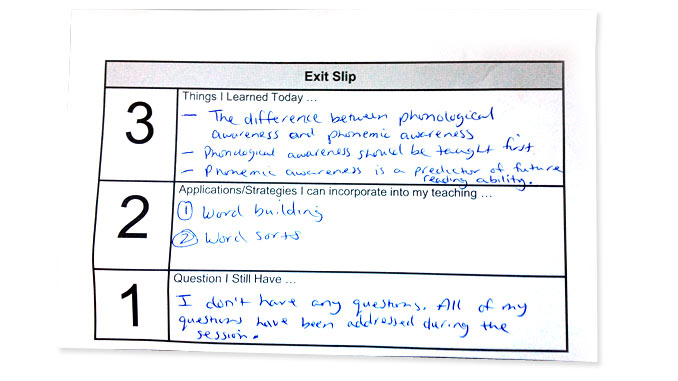 Exit Slip
3
Things I Learned Today ...
– The difference between phonological
awareness and phonemic awareness
– Phonological awareness should be taught first.
– Phonemic awareness is a predictor of future
reading ability.
2
Applications/Strategies I can incorporate into my teaching ...
① Word building
② Word sorts
1
Question I Still Have ...
I don't have any questions. All of my
questions have been addressed during the
session.